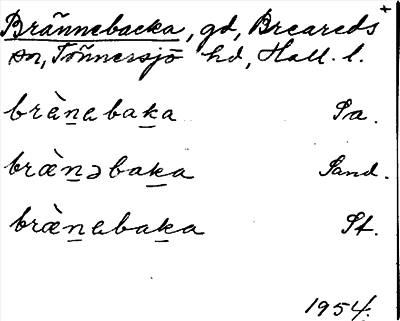 Brännebacka, gd, Breareds +
sn, Tönnersjö hd, Hall. l.
bræ̀nabaka Sa.
bræ̀nəbaka Sand.
bræ̀nabaka St.
1954.